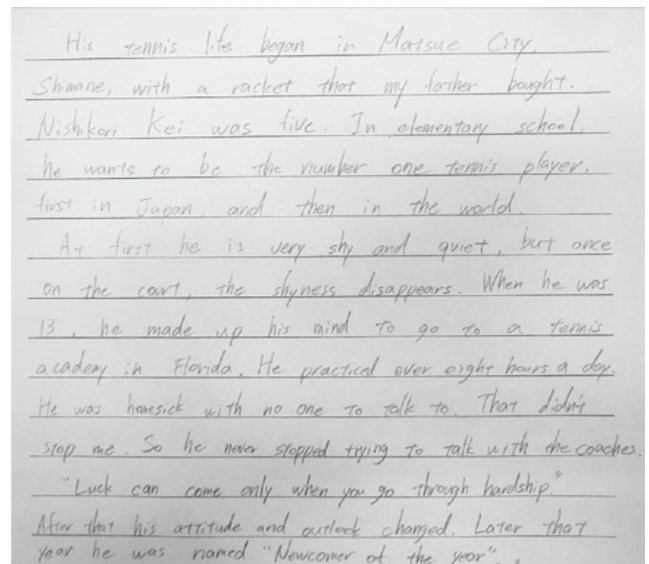 His tennis life began in Matsue City,
Shimane, with a racket that my father bought.
Nishikori Kei was five. In elementary school,
he wants to be the number one tennis player,
first in Japan, and then in the world.
At first he is very shy and quiet, but once
on the court, the shyness disappears. When he was
13, he made up his mind to go to a tennis
academy in Florida. He practiced over eight hours a day.
He was homesick with no one to talk to. That didn't
stop me. So he never stopped trying to talk with the coaches.
"Luck can come only when you go through hardship."
After that his attitude and outlook changed. Later that
year he was named "Newcomer of the year".